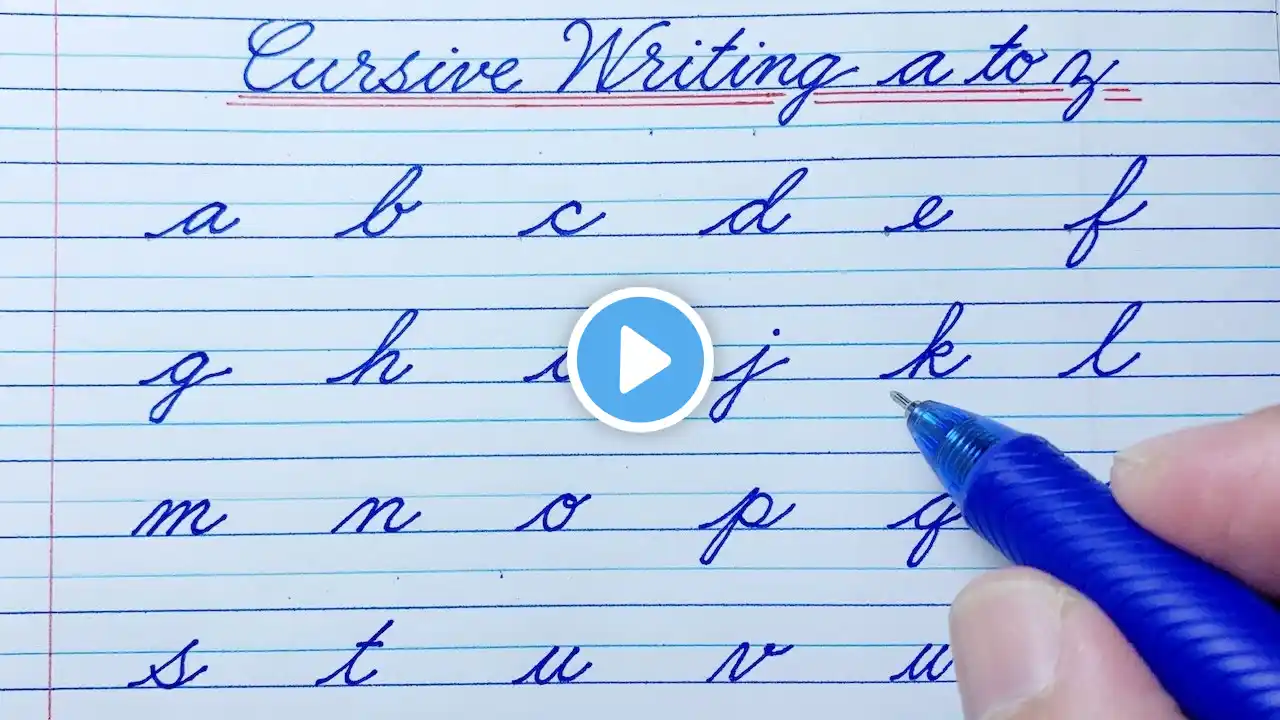 Cursive Writing a to z
a b c d e f
g h i j k l
m n o p q
s t u v